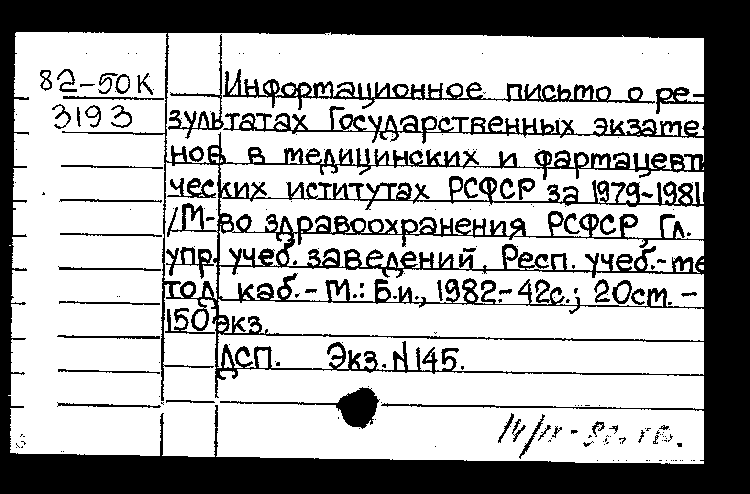 82-50К
3193
Информационное письмо о ре-
зультатах Государственных экзаме
нов в медицинских и фармацевти
ческих иститутах РСФСР за 1979-1981
/М-во здравоохранения РСФСР, Гл.
упр. учеб. заведений, Респ. учеб.-ме
тод. каб.- М.: Б.и., 1982.- 42с.; 20см. -
150 экз.
ДСП. Экз. N 145.
14/IX - 82.